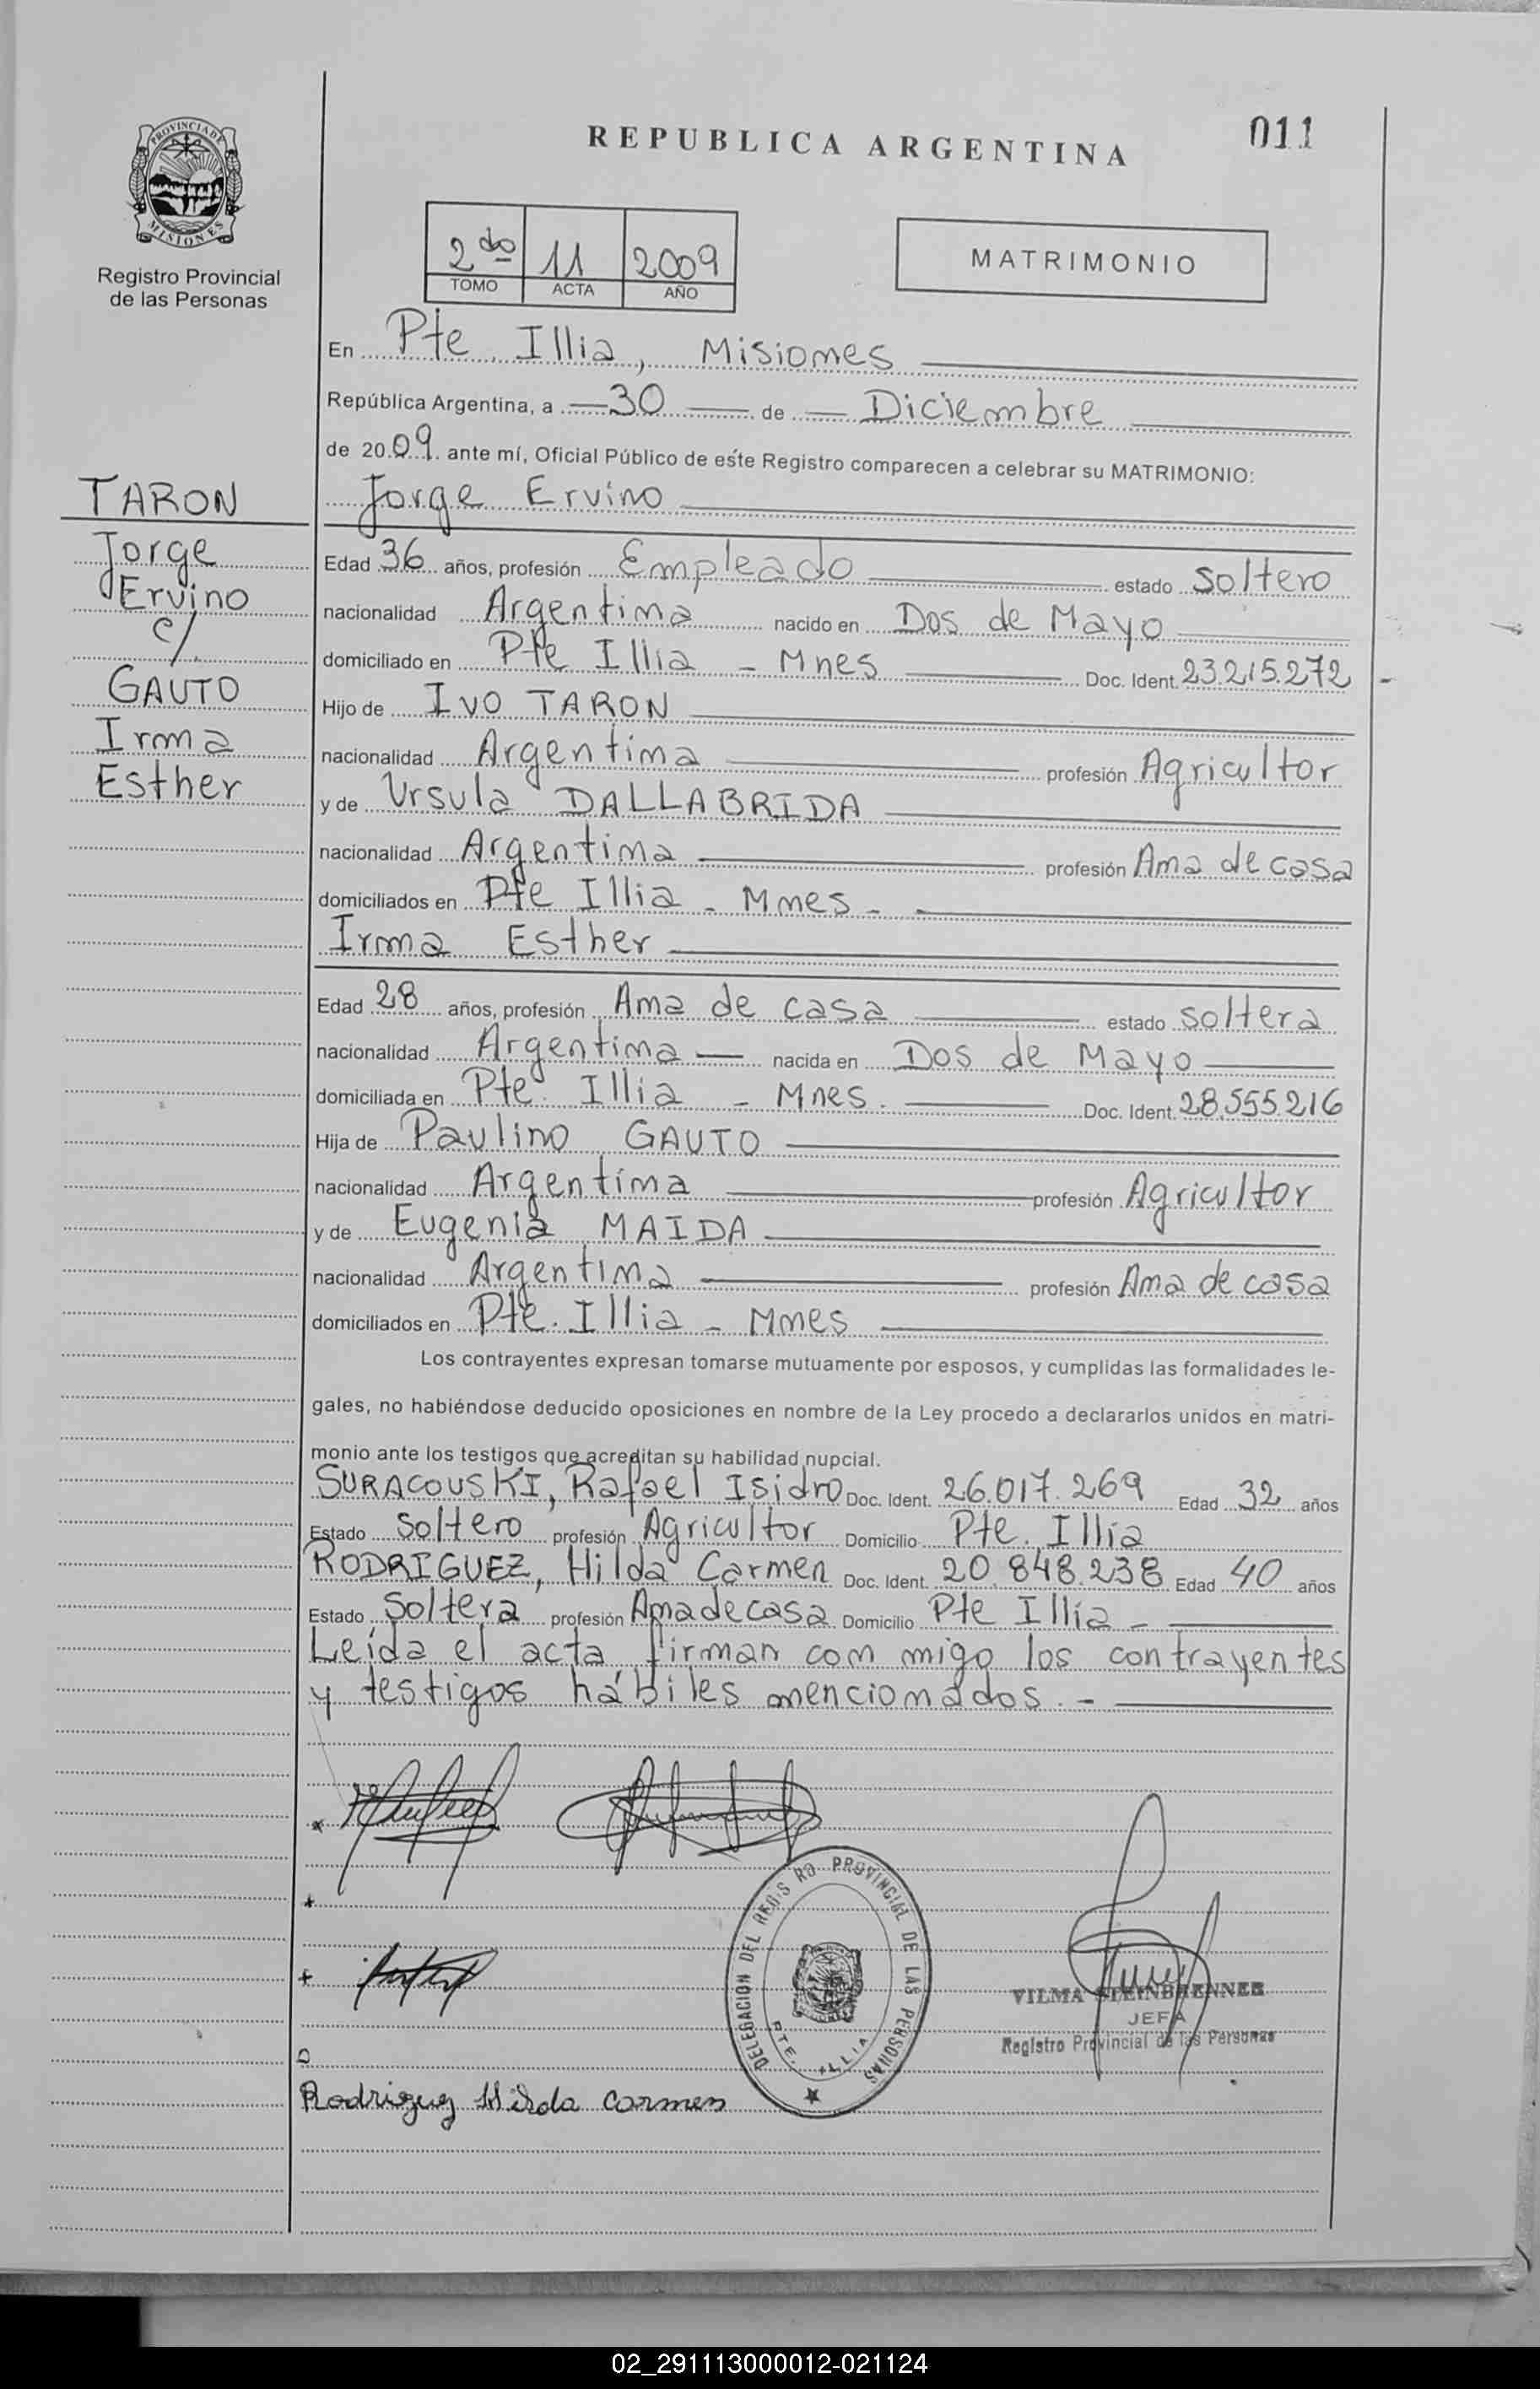 REPUBLICA ARGENTINA
011
PROVINCIA DE MISIONES
Registro Provincial
de las Personas
2do 11 2009
TOMO ACTA AÑO
MATRIMONIO
En Pte. Illia, Misiones
República Argentina, a 30 de Diciembre
de 2009 ante mí, Oficial Público de este Registro comparecen a celebrar su MATRIMONIO:
TARON
Jorge
Ervino
c/.
GAUTO
Irma
Esther
Jorge Ervino
Edad 36 años, profesión Empleado estado Soltero
nacionalidad Argentina nacido en Dos de Mayo
domiciliado en Pte Illia - Mnes Doc. Ident. 23.215.272 -
Hijo de IVO TARON
nacionalidad Argentina profesión Agricultor
y de Ursula DALLABRIDA
nacionalidad Argentina profesión Ama de casa
domiciliados en Pte Illia - Mnes -
Irma Esther
Edad 28 años, profesión Ama de casa estado soltera
nacionalidad Argentina nacida en Dos de Mayo
domiciliada en Pte. Illia - Mnes. Doc. Ident. 28.555.216
Hija de Paulino GAUTO
nacionalidad Argentina profesión Agricultor
y de Eugenia MAIDA
nacionalidad Argentina profesión Ama de casa
domiciliados en Pte. Illia - Mnes
Los contrayentes expresan tomarse mutuamente por esposos, y cumplidas las formalidades le-
gales, no habiéndose deducido oposiciones en nombre de la Ley procedo a declararlos unidos en matri-
monio ante los testigos que acreditan su habilidad nupcial.
SURACOUSKI, Rafael Isidro Doc. Ident. 26.017.269 Edad 32 años
Estado Soltero profesión Agricultor Domicilio Pte. Illia
RODRIGUEZ, Hilda Carmen Doc. Ident. 20.848.238 Edad 40 años
Estado Soltera profesión Ama de casa Domicilio Pte Illia -
Leída el acta firman con migo los contrayentes
y testigos hábiles mencionados. -
DELEGACION DEL REGISRO PROVINCIAL DE LAS PERSONAS
PTE. ILLIA
VILMA STEINBRENNER
JEFA
Registro Provincial de las Personas
Rodriguez Hilda Carmen
02_291113000012-021124